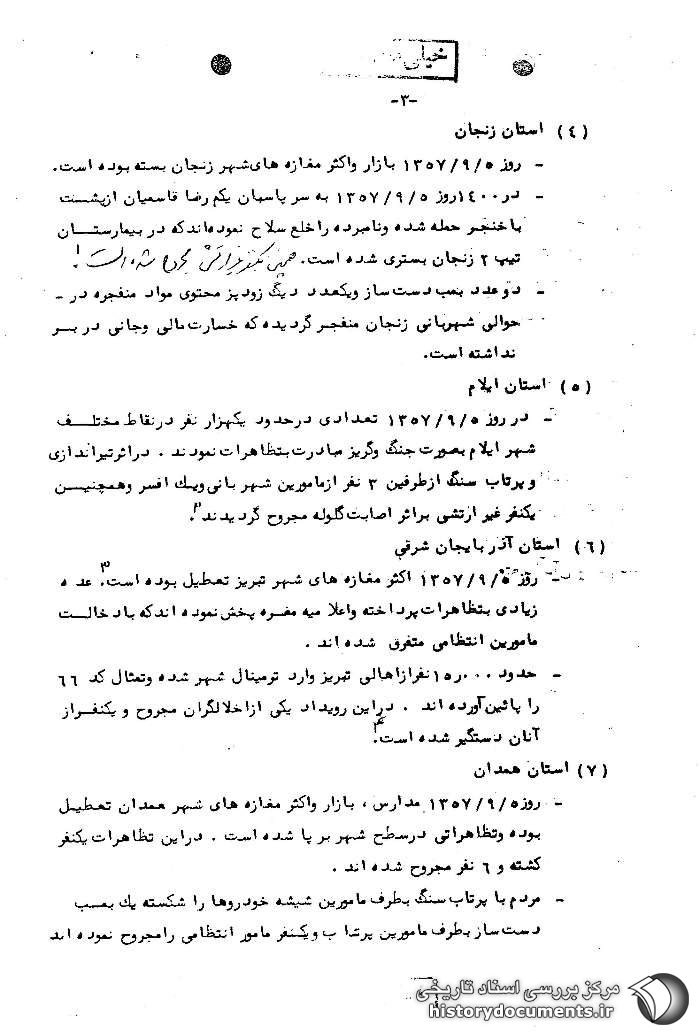 خیلی
-۳-
(٤) استان زنجان
- روز ۱۳۵۷/۹/۵ بازار واکثر مغازه های شهر زنجان بسته بوده است.
- در ۱٤۰۰ روز ۱۳۵۷/۹/۵ به سر پاسبان یکم رضا قاسمیان ازپشت
با خنجر حمله شده ونامبرده را خلع سلاح نموده اند که در بیمارستان
تیپ ۲ زنجان بستری شده است.
- دو عدد بمب دست ساز ویکعدد دیگ زودپز محتوی مواد منفجره در -
حوالی شهربانی زنجان منفجر گردیده که خسارت مالی وجانی در بر
نداشته است.
(۵) استان ایلام
- در روز ۱۳۵۷/۹/۵ تعدادی درحدود یکهزار نفر درنقاط مختلف
شهر ایلام بصورت جنگ وگریز مبادرت بتظاهرات نمودند . دراثرتیراندازی
و پرتاب سنگ ازطرفین ۳ نفر ازمامورین شهربانی ویك افسر وهمچنیسن
یکنفر غیر ارتشی براثر اصابت گلوله مجروح گردیدند ۲.
(٦) استان آذربایجان شرقی
- روز ۱۳۵۷/۹/۵ اکثر مغازه های شهر تبریز تعطیل بوده است ۳. عده
زیادی بتظاهرات پرداخته واعلامیه مضره پخش نموده اندکه بادخالت
مامورین انتظامی متفرق شده اند .
- حدود ۱۵ر۰۰۰ نفرازاهالی تبریز وارد ترمینال شهر شده وتمثال کد ٦٦
را پائین آورده اند . دراین رویداد یکی ازاخلالگران مجروح و یکنفراز
آنان دستگیر شده است ٤.
(۷) استان همدان
- روز ۱۳۵۷/۹/۵ مدارس ، بازار واکثر مغازه های شهر همدان تعطیل
بوده وتظاهراتی درسطح شهر بر پا شده است . دراین تظاهرات یکنفر
کشته و ٦ نفر مجروح شده اند .
- مردم با پرتاب سنگ بطرف مامورین شیشه خودروها را شکسته یك بمب
دست ساز بطرف مامورین پرتاب ویکنفر مامور انتظامی رامجروح نموده اند
مرکز بررسی اسناد تاریخی
historydocuments.ir